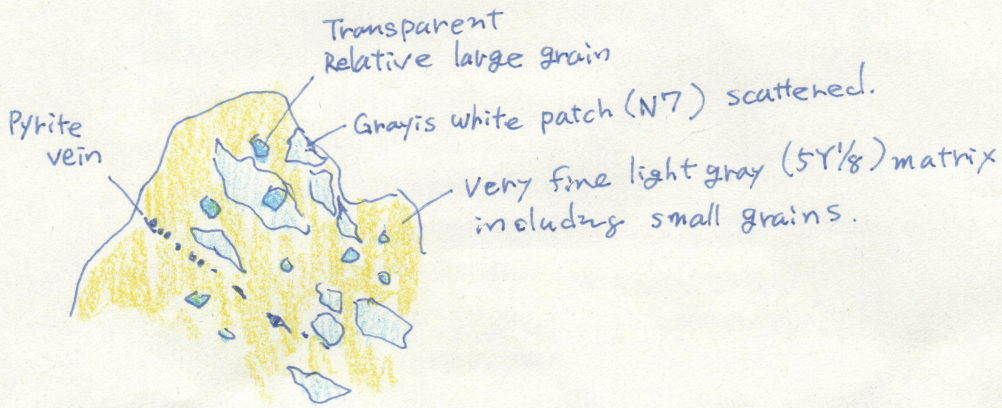 Transparent
Relative large grain
Pyrite
vein
Grayis white patch (N7) scattered.
Very fine light gray (5Y1/8) matrix
including small grains.